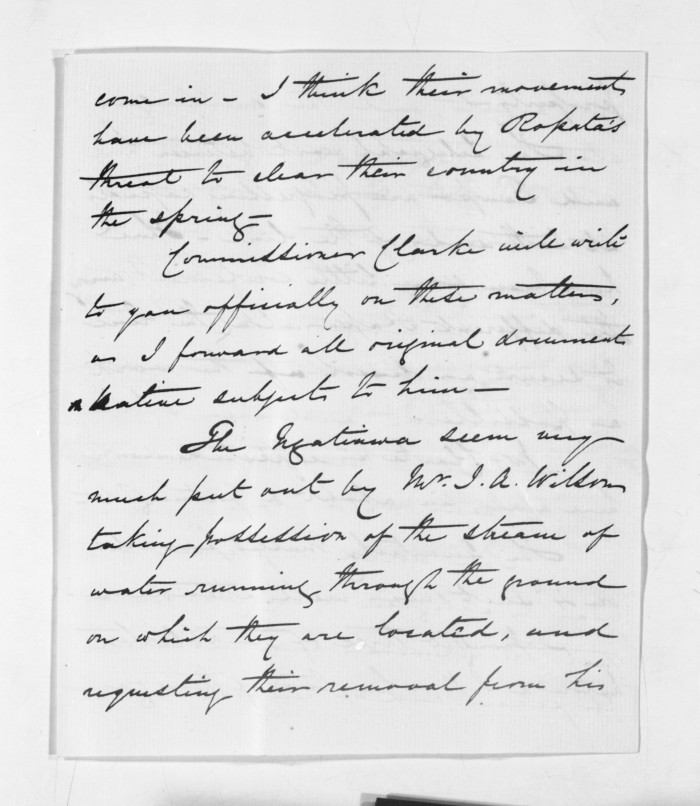 come in - I think their movements
have been accelerated by Ropata's
threat to clear their country in
the spring -
Commissioner Clarke will write
to you officially on these matters,
as I forward all original documents
on Native subjects to him -
The Ngatiawa seem very
much put out by Mr. J. A. Wilson
taking possession of the stream of
water running through the ground
on which they are located, and
requesting their removal from his